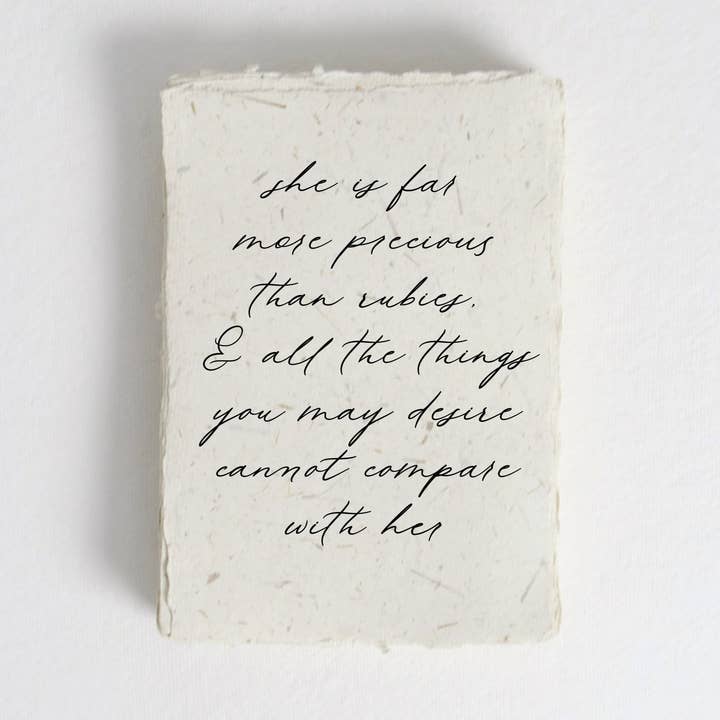 she is far
more precious
than rubies.
& all the things
you may desire
cannot compare
with her